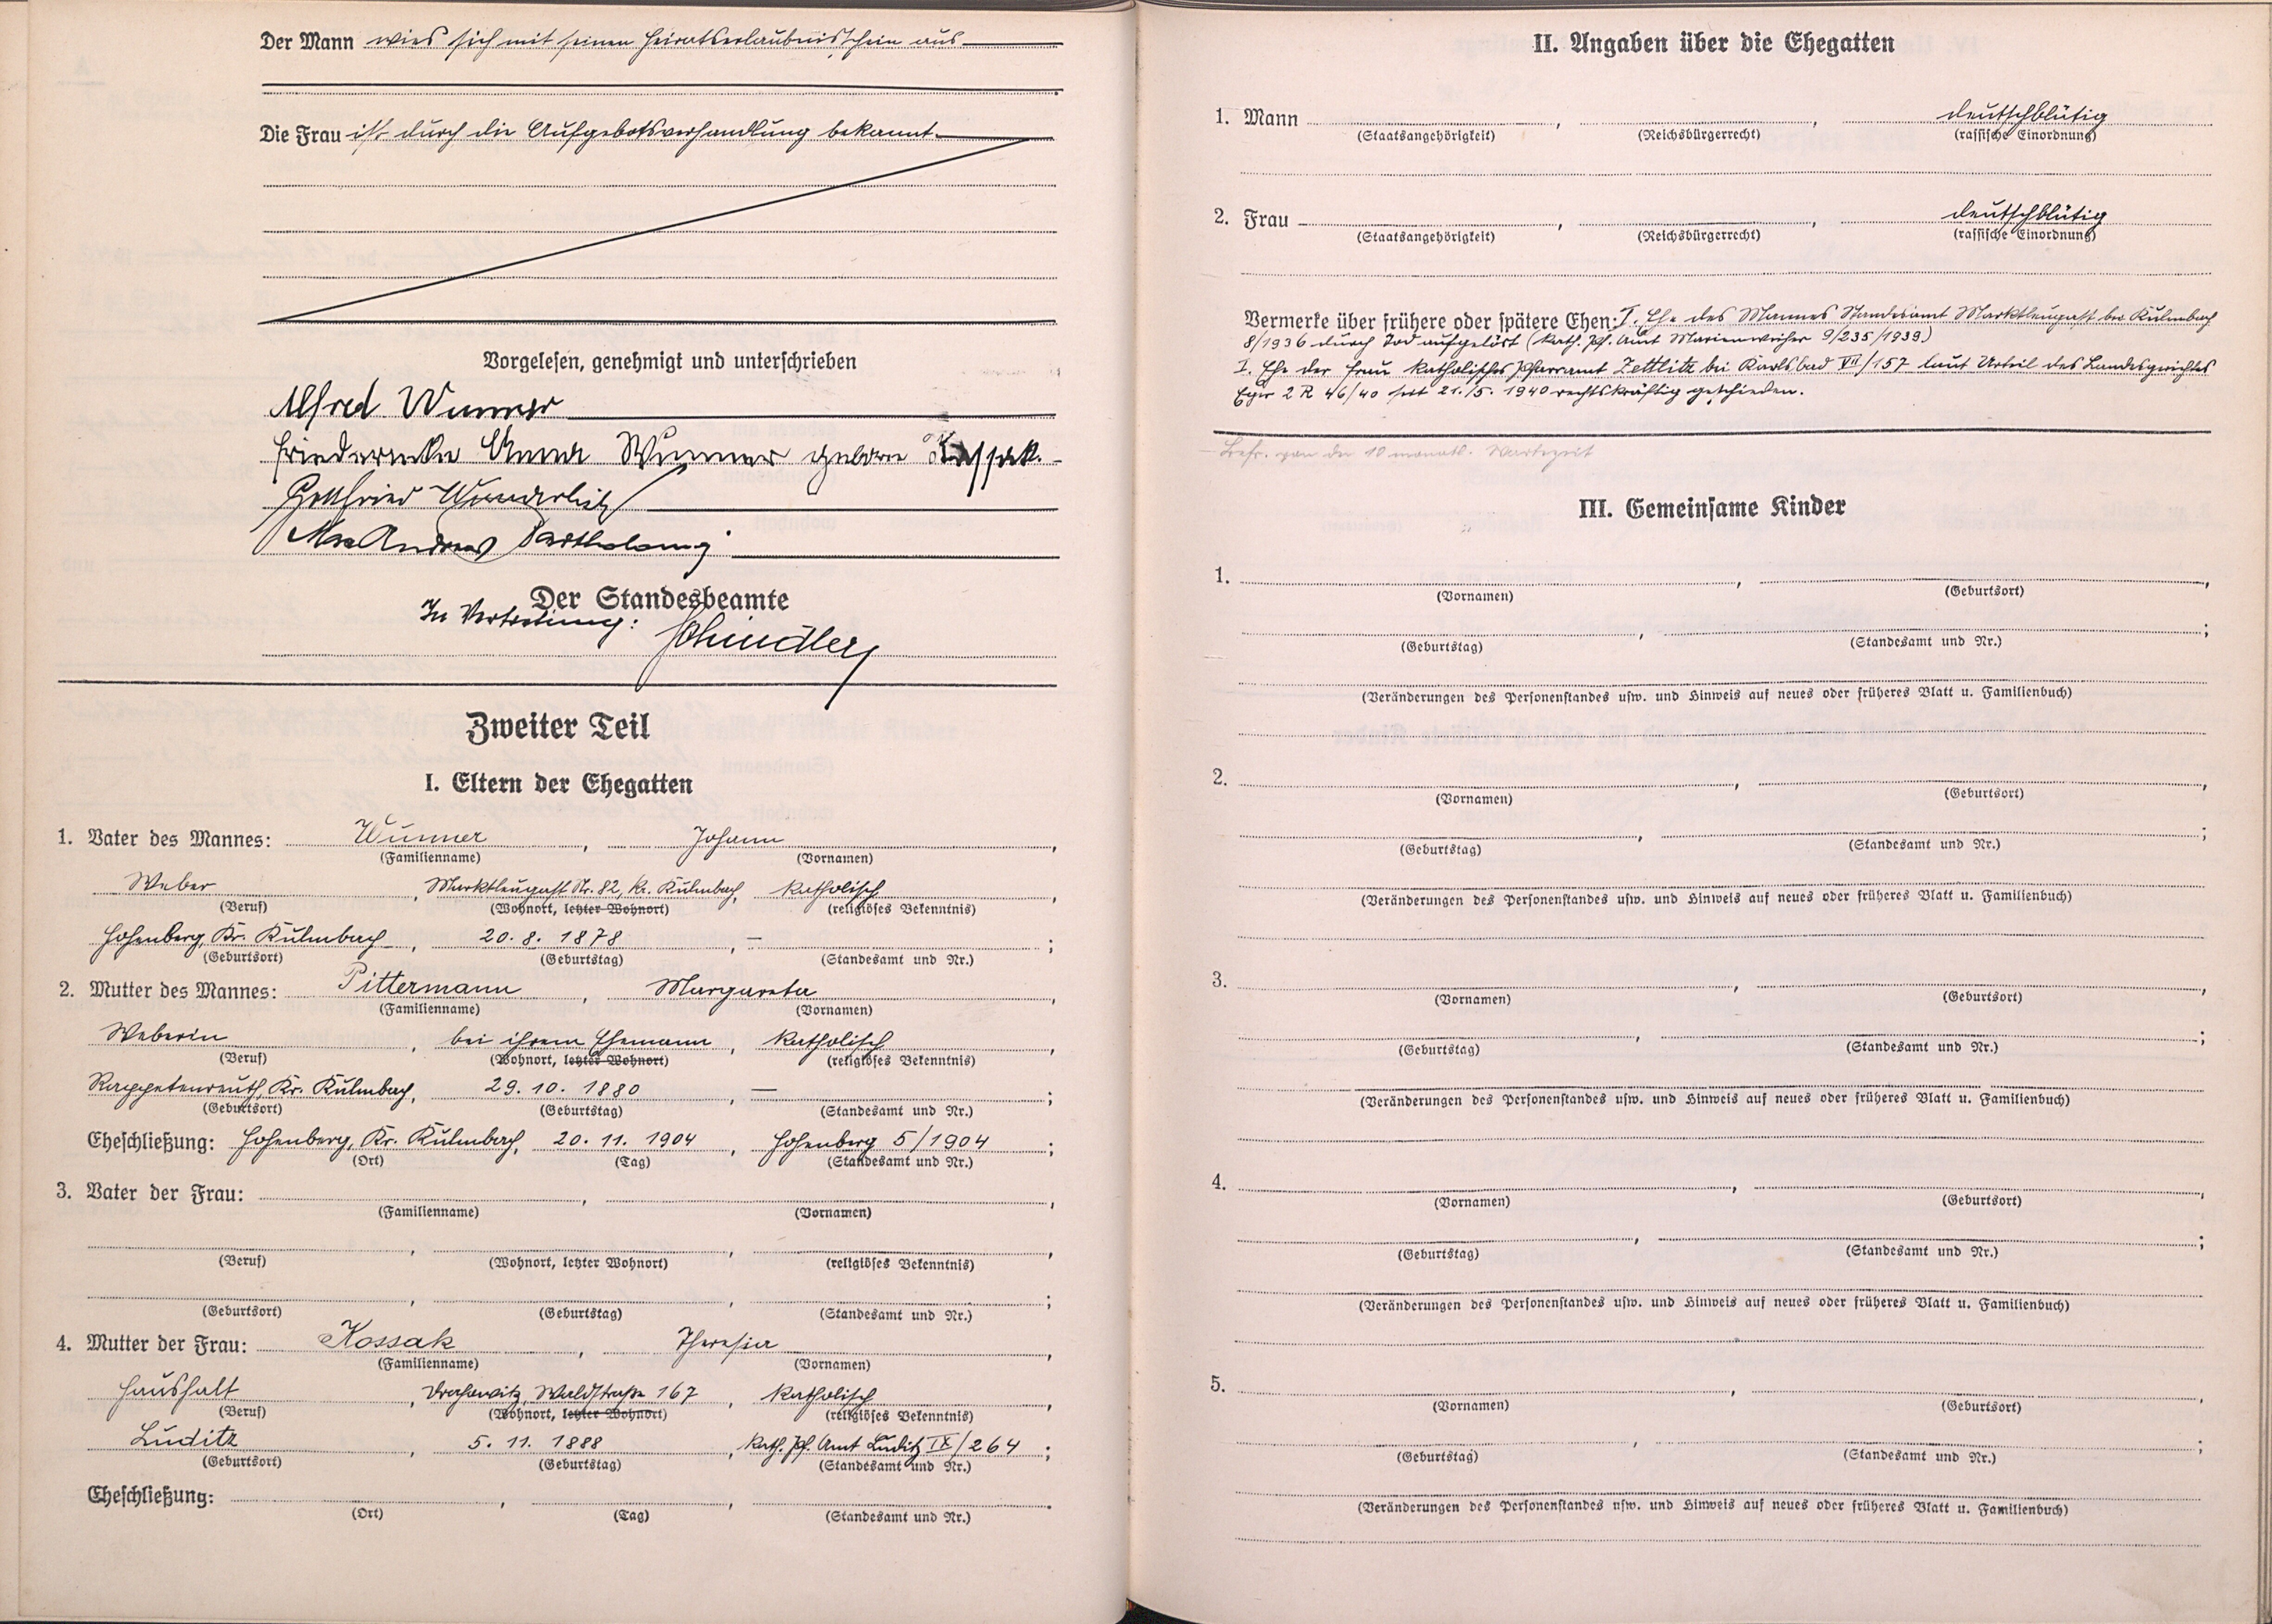 Der Mann wies sich mit seinem Heiratserlaubnisschein aus
Die Frau ist durch die Aufgebotsverhandlung bekannt.
Vorgelesen, genehmigt und unterschrieben
Alfred Wunner
Friedericke Anna Wunner geborene Kossak.
Gottfried Wunderlich
Max Andreas Bartholomy
Der Standesbeamte
In Vertretung: Schindler
Zweiter Teil
I. Eltern der Ehegatten
1. Vater des Mannes: Wunner, Johann,
(Familienname) (Vornamen)
Weber, Marktleugast Nr. 82, Kr. Kulmbach, katholisch,
(Beruf) (Wohnort, letzter Wohnort) (religiöses Bekenntnis)
Hohenberg, Kr. Kulmbach, 20. 8. 1878, — ;
(Geburtsort) (Geburtstag) (Standesamt und Nr.)
2. Mutter des Mannes: Pittermann, Margareta,
(Familienname) (Vornamen)
Weberin, bei ihrem Ehemann, katholisch,
(Beruf) (Wohnort, letzter Wohnort) (religiöses Bekenntnis)
Rappetenreuth, Kr. Kulmbach, 29. 10. 1880, — ;
(Geburtsort) (Geburtstag) (Standesamt und Nr.)
Eheschließung: Hohenberg, Kr. Kulmbach, 20. 11. 1904, Hohenberg 5/1904;
(Ort) (Tag) (Standesamt und Nr.)
3. Vater der Frau: , ,
(Familienname) (Vornamen)
, , ,
(Beruf) (Wohnort, letzter Wohnort) (religiöses Bekenntnis)
, , ;
(Geburtsort) (Geburtstag) (Standesamt und Nr.)
4. Mutter der Frau: Kossak, Theresia,
(Familienname) (Vornamen)
Haushalt, Drahowitz, Waldstraße 167, katholisch,
(Beruf) (Wohnort, letzter Wohnort) (religiöses Bekenntnis)
Luditz, 5. 11. 1888, kath. Pf. Amt Luditz IX/264;
(Geburtsort) (Geburtstag) (Standesamt und Nr.)
Eheschließung: , , .
(Ort) (Tag) (Standesamt und Nr.)
II. Angaben über die Ehegatten
1. Mann , , deutschblütig
(Staatsangehörigkeit) (Reichsbürgerrecht) (rassische Einordnung)
2. Frau , , deutschblütig
(Staatsangehörigkeit) (Reichsbürgerrecht) (rassische Einordnung)
Vermerke über frühere oder spätere Ehen: I. Ehe des Mannes Standesamt Marktleugast bei Kulmbach
8/1936 durch Tod aufgelöst (Kath. Pf. Amt Marienweiher 9/235/1939)
I. Ehe der Frau Katholisches Pfarramt Zettlitz bei Karlsbad VII/157 laut Urteil des Landesgerichtes
Eger 2 R 46/40 seit 21./5. 1940 rechtskräftig geschieden.
Befr. von der 10 monatl. Wartezeit
III. Gemeinsame Kinder
1. , ,
(Vornamen) (Geburtsort)
, ;
(Geburtstag) (Standesamt und Nr.)
(Veränderungen des Personenstandes usw. und Hinweis auf neues oder früheres Blatt u. Familienbuch)
2. , ,
(Vornamen) (Geburtsort)
, ;
(Geburtstag) (Standesamt und Nr.)
(Veränderungen des Personenstandes usw. und Hinweis auf neues oder früheres Blatt u. Familienbuch)
3. , ,
(Vornamen) (Geburtsort)
, ;
(Geburtstag) (Standesamt und Nr.)
(Veränderungen des Personenstandes usw. und Hinweis auf neues oder früheres Blatt u. Familienbuch)
4. , ,
(Vornamen) (Geburtsort)
, ;
(Geburtstag) (Standesamt und Nr.)
(Veränderungen des Personenstandes usw. und Hinweis auf neues oder früheres Blatt u. Familienbuch)
5. , ,
(Vornamen) (Geburtsort)
, ;
(Geburtstag) (Standesamt und Nr.)
(Veränderungen des Personenstandes usw. und Hinweis auf neues oder früheres Blatt u. Familienbuch)